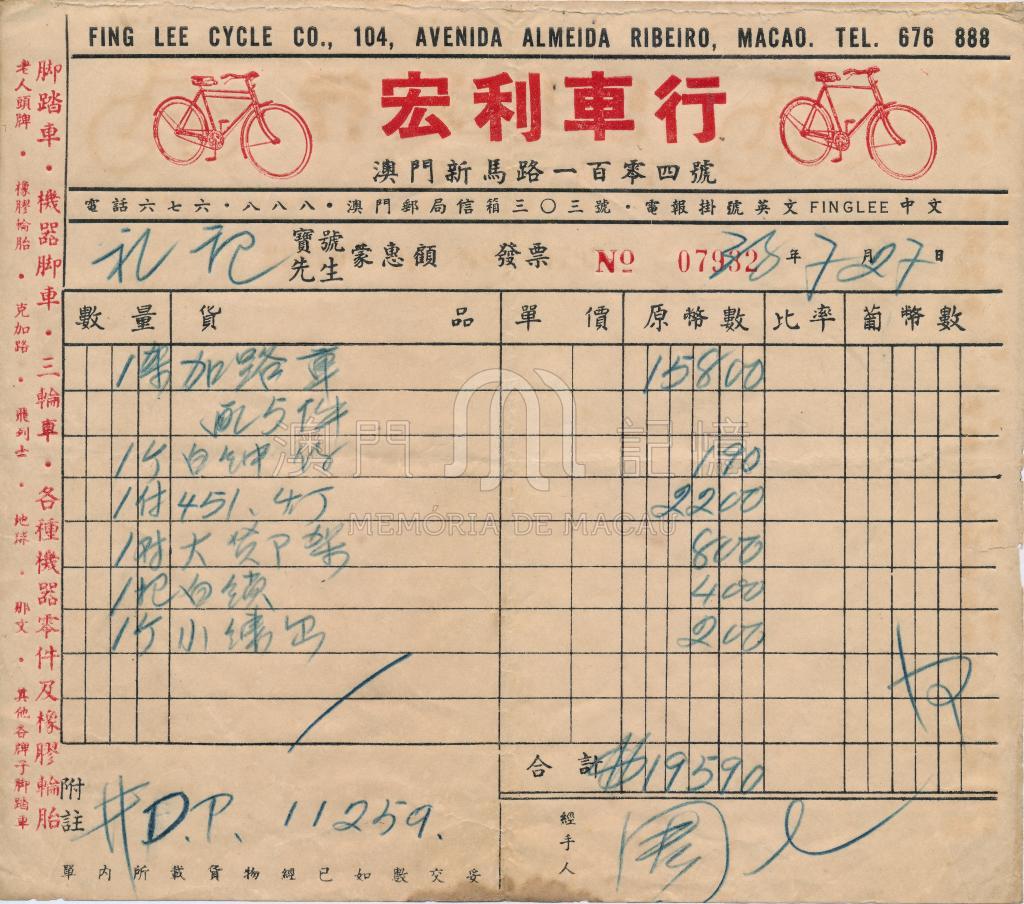 FING LEE CYCLE CO., 104, AVENIDA ALMEIDA RIBEIRO, MACAO. TEL. 676 888
宏利車行
澳門新馬路一百零四號
電話六七六・八八八・澳門郵局信箱三〇三號・電報掛號英文 FINGLEE 中文
礼記 寶號 先生 蒙惠顧 發票 Nº 07932 年 7 月 27 日
數量 貨品 單價 原幣數 比率 葡幣數
1架 加路車 15800
配5件
1个 白 190
1付 451. 2200
大 架 800
1把 白鎖 400
1个 小 200
合計 19590
附註 # D.P. 11259.
經手人
單內所載貨物經已如數交妥
脚踏車・機器脚車・三輪車・各種機器零件及橡膠輪胎
老人頭牌・橡膠輪胎・克加路・飛利士・地球・那文・其他各牌子脚踏車
澳門記憶
MEMÓRIA DE MACAU